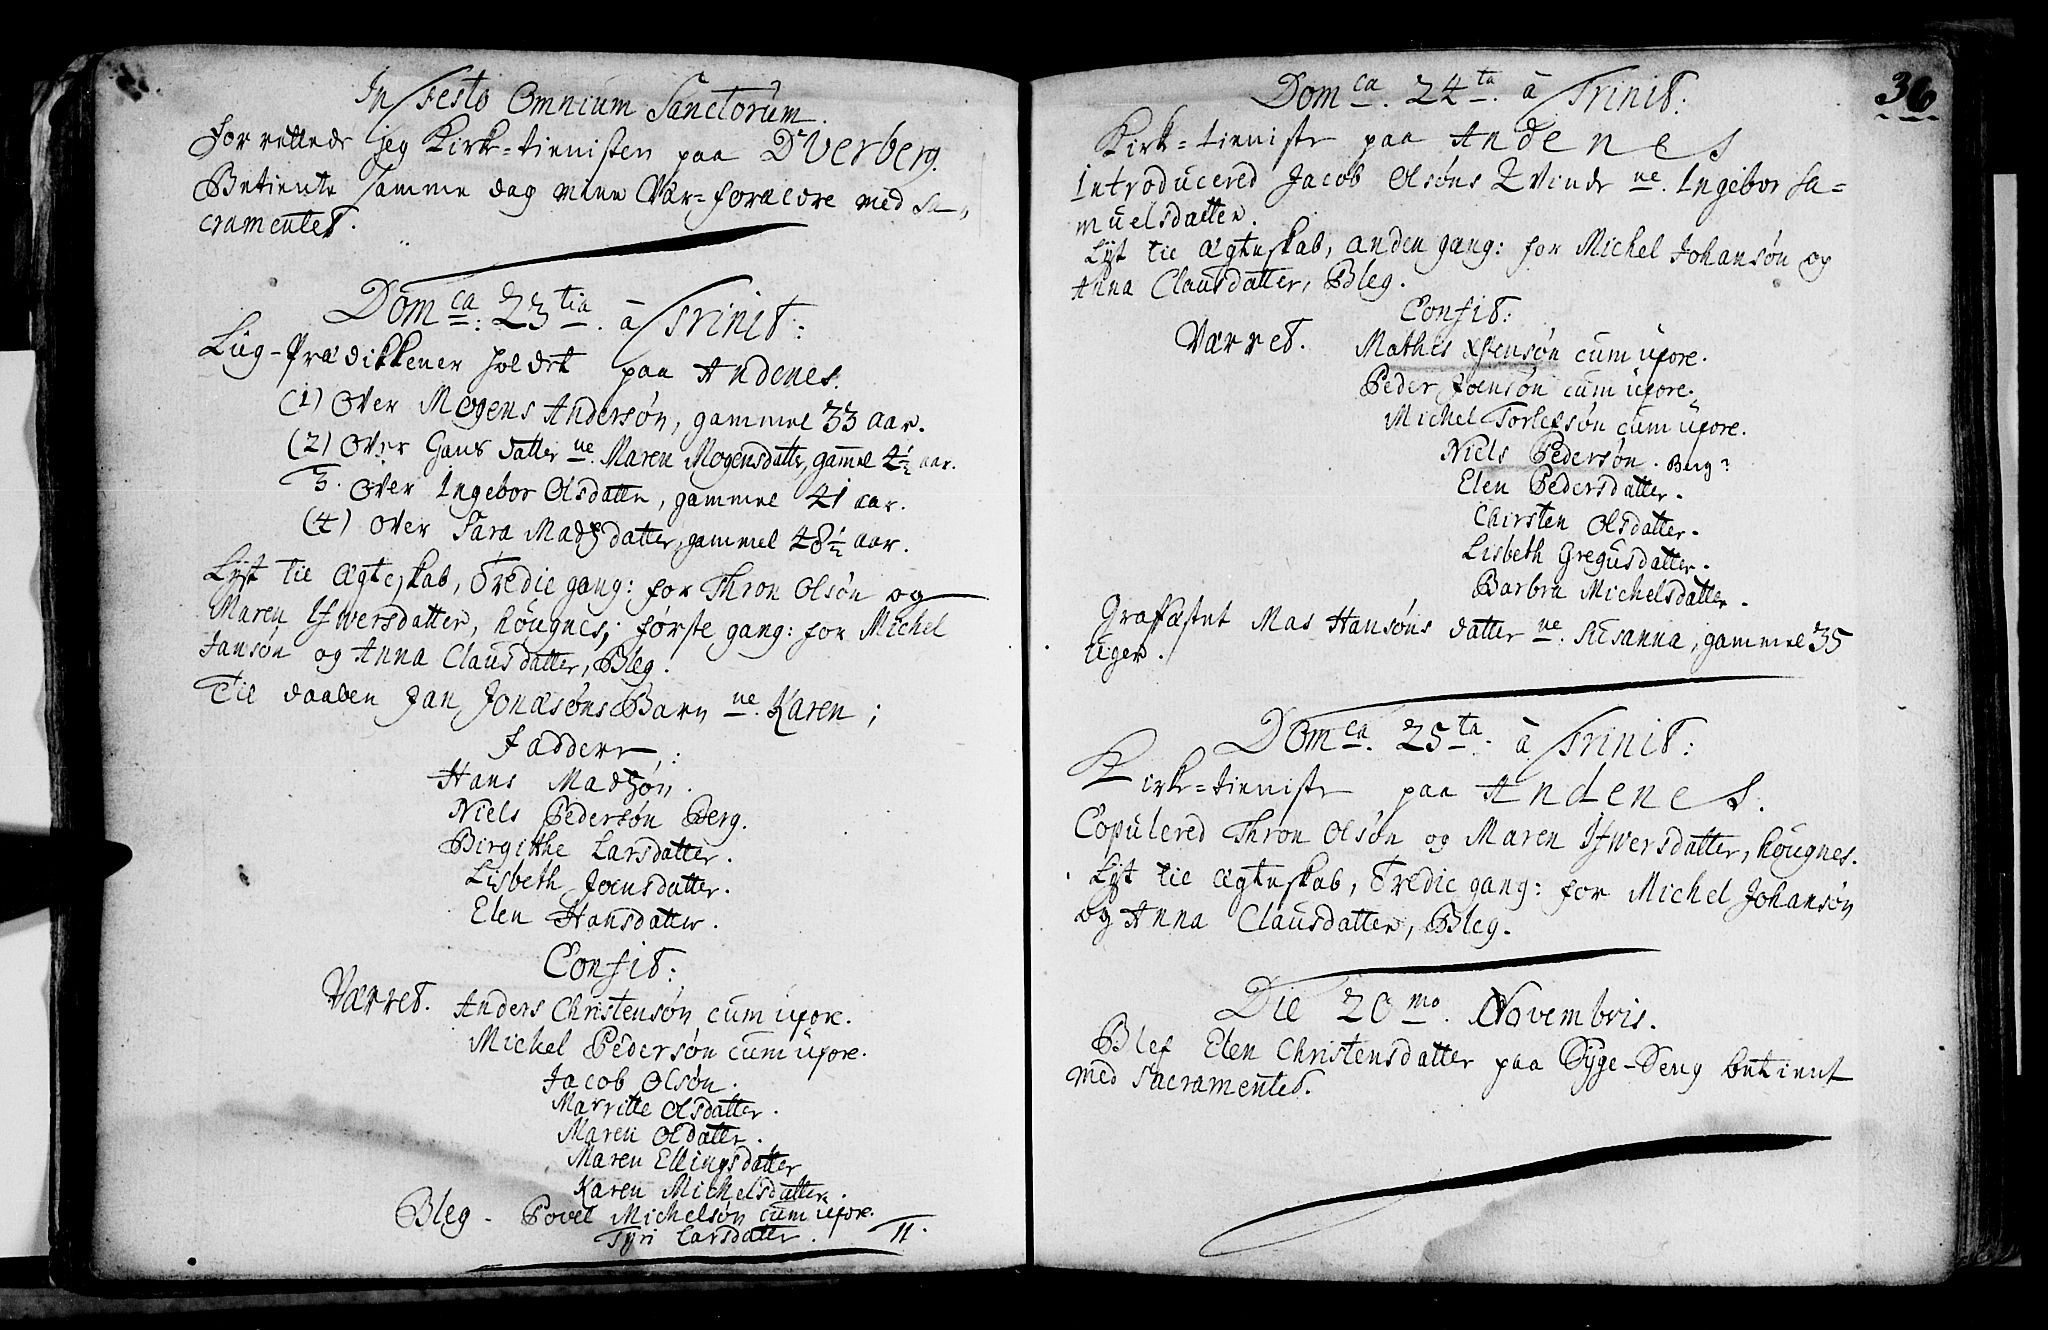 In Festo Omnium Sanctorum.
Forrettede jeg Kirke=tienisten paa Dverberg.
Betiente samme dag mine Vær=forældre med Sa-
cramentet.
Dom ca: 23 tia. à Trinit:
Liig-Prædikkener holdet paa Andenes.
(1) Over Mogens Andersøn, gammel 33 aar.
(2) Over Hans datter ne. Maren Mogensdatter, gammel 4½ aar.
3. Over Ingebor Olsdatter, gammel 41 aar.
(4) Over Sara Madsdatter, gammel 48½ aar.
Lyst til Ægteskab, Tredie gang: for Thron Olsøn og
Maren Ifwersdatter, Høugnes; første gang: for Michel
Jansøn og Anna Clausdatter, Bleg.
Til daaben Jan Jonæsøns Barn ne. Karen;
Faddere:
Hans Madsøn.
Niels Pedersøn Berg.
Birgitthe Larsdatter.
Lisbeth Joensdatter.
Elen Hansdatter.
Confit:
Værret. Anders Christensøn cum uxore.
Michel Pedersøn cum uxore.
Jacob Olsøn.
Marritte Olsdatter.
Maren Oldatter.
Maren Ellingsdatter
Karen Michelsdatter.
Bleg - Povel Michelsøn cum uxore.
Tyri Larsdatter. 11.
36
Dom ca. 24 ta. à Trinit:
Kirke=tieniste paa Andenes
Introducered Jacob Olsøns Qvinde ne. Ingebor Sa=
muelsdatter.
Lyst til Ægteskab, anden gang: for Michel Johansøn og
Anna Clausdatter, Bleg.
Confit:
Værret. Mathis cum uxore.
Peder Joensøn cum uxore.
Michel Torlefsøn cum uxore.
Niels Pedersøn. Berg
Elen Pedersdatter.
Chirsten Olsdatter.
Lisbeth Gregusdatter.
Barbra Michelsdatter.
Graffæstet Mas Hansøns datter ne. Susanna, gammel 35
uger.
Dom ca. 25 ta. à Trinit:
Kirke=tieniste paa Andenes.
Copulered Thron Olsøn og Maren Ifwersdatter, Høugnes.
Lyst til Ægteskab, Tredie gang: for Michel Johansøn
og Anna Clausdatter, Bleg.
Die 20 mo. Novembris.
Blef Elen Christensdatter paa Syge-Seng betient
med Sacramentet.